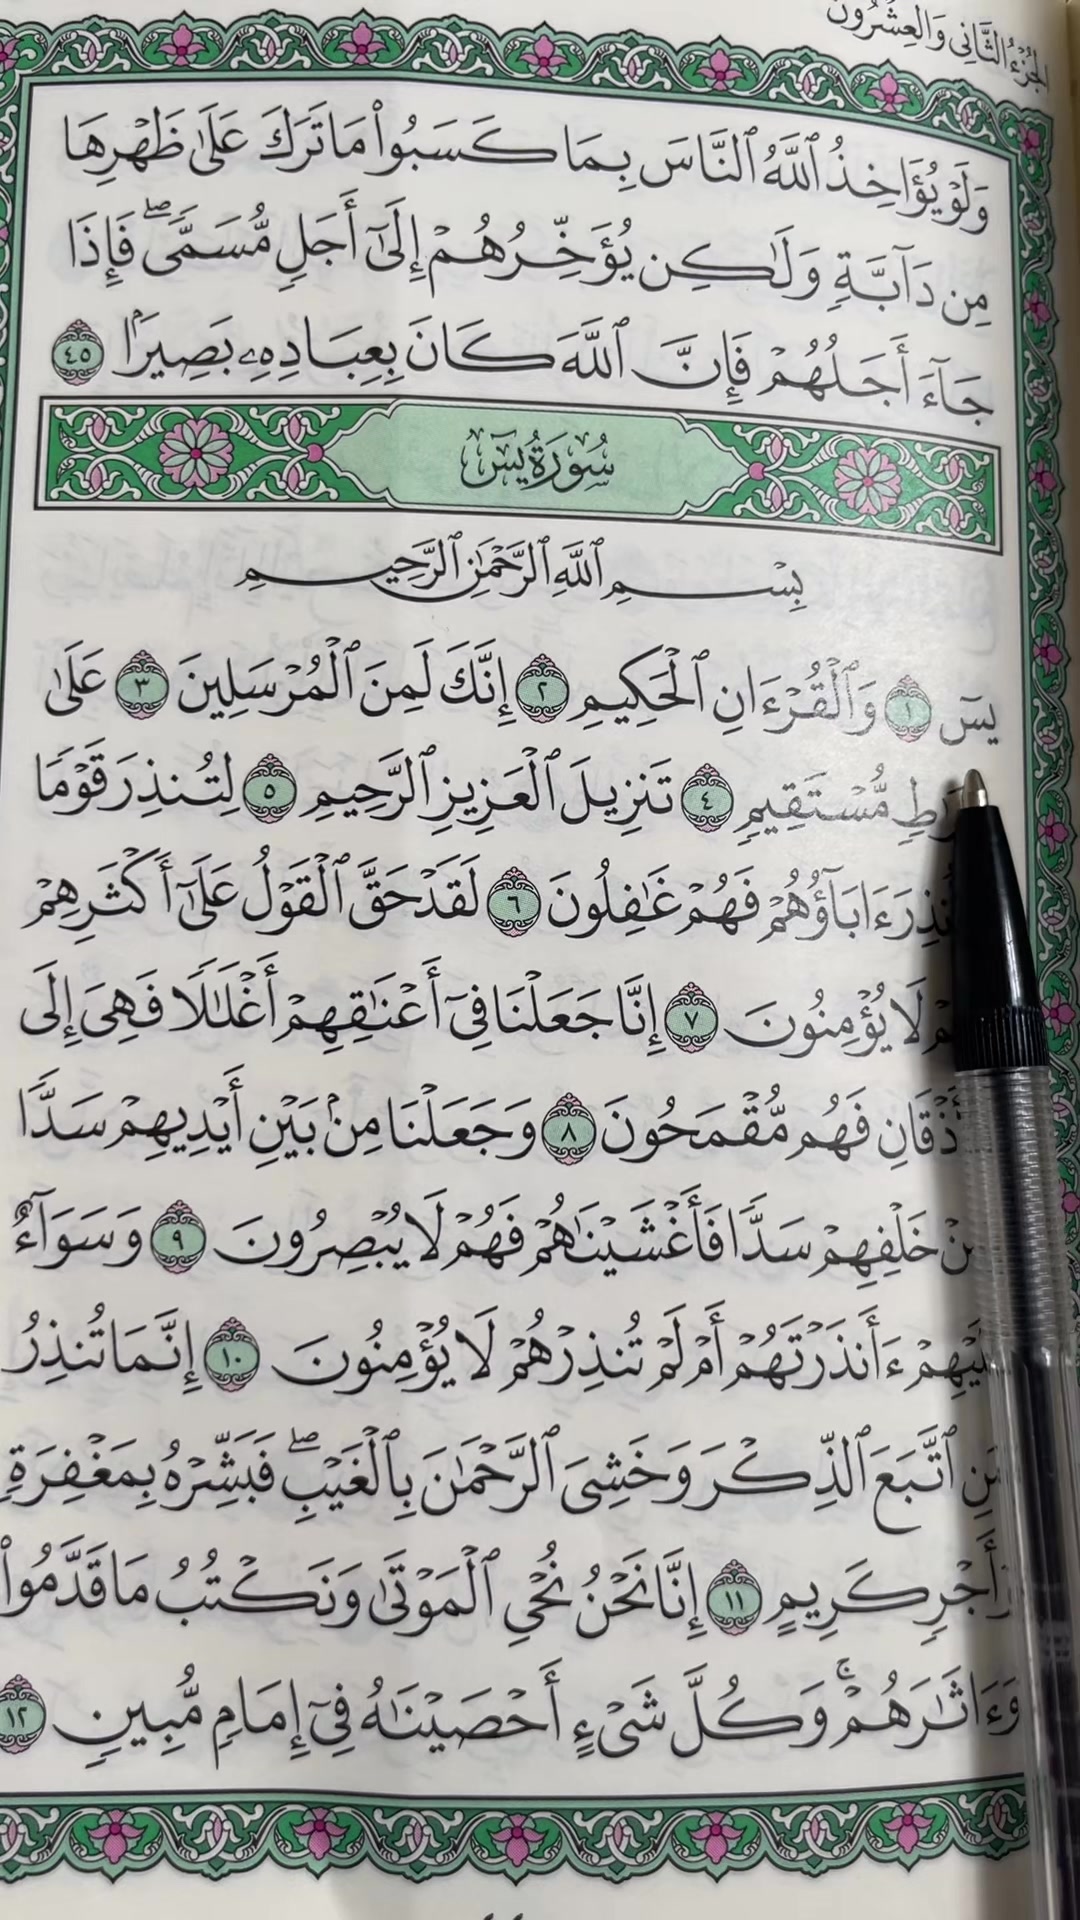 الجزء الثاني والعشرون
وَلَوْ يُؤَاخِذُ ٱللَّهُ ٱلنَّاسَ بِمَا كَسَبُوا۟ مَا تَرَكَ عَلَىٰ ظَهْرِهَا
مِن دَآبَّةٍ وَلَـٰكِن يُؤَخِّرُهُمْ إِلَىٰٓ أَجَلٍ مُّسَمًّى ۖ فَإِذَا
جَآءَ أَجَلُهُمْ فَإِنَّ ٱللَّهَ كَانَ بِعِبَادِهِۦ بَصِيرًۢا ٤٥
سُورَةُ يسٓ
بِسْمِ ٱللَّهِ ٱلرَّحْمَـٰنِ ٱلرَّحِيمِ
يسٓ ١ وَٱلْقُرْءَانِ ٱلْحَكِيمِ ٢ إِنَّكَ لَمِنَ ٱلْمُرْسَلِينَ ٣ عَلَىٰ
مُّسْتَقِيمٍ ٤ تَنزِيلَ ٱلْعَزِيزِ ٱلرَّحِيمِ ٥ لِتُنذِرَ قَوْمًا
ءَابَآؤُهُمْ فَهُمْ غَـٰفِلُونَ ٦ لَقَدْ حَقَّ ٱلْقَوْلُ عَلَىٰٓ أَكْثَرِهِمْ
لَا يُؤْمِنُونَ ٧ إِنَّا جَعَلْنَا فِىٓ أَعْنَـٰقِهِمْ أَغْلَـٰلًا فَهِىَ إِلَى
فَهُم مُّقْمَحُونَ ٨ وَجَعَلْنَا مِنۢ بَيْنِ أَيْدِيهِمْ سَدًّا
خَلْفِهِمْ سَدًّا فَأَغْشَيْنَـٰهُمْ فَهُمْ لَا يُبْصِرُونَ ٩ وَسَوَآءٌ
ءَأَنذَرْتَهُمْ أَمْ لَمْ تُنذِرْهُمْ لَا يُؤْمِنُونَ ١٠ إِنَّمَا تُنذِرُ
ٱتَّبَعَ ٱلذِّكْرَ وَخَشِىَ ٱلرَّحْمَـٰنَ بِٱلْغَيْبِ ۖ فَبَشِّرْهُ بِمَغْفِرَةٍ
كَرِيمٍ ١١ إِنَّا نَحْنُ نُحْىِ ٱلْمَوْتَىٰ وَنَكْتُبُ مَا قَدَّمُوا۟
وَءَاثَـٰرَهُمْ ۚ وَكُلَّ شَىْءٍ أَحْصَيْنَـٰهُ فِىٓ إِمَامٍ مُّبِينٍ ١٢